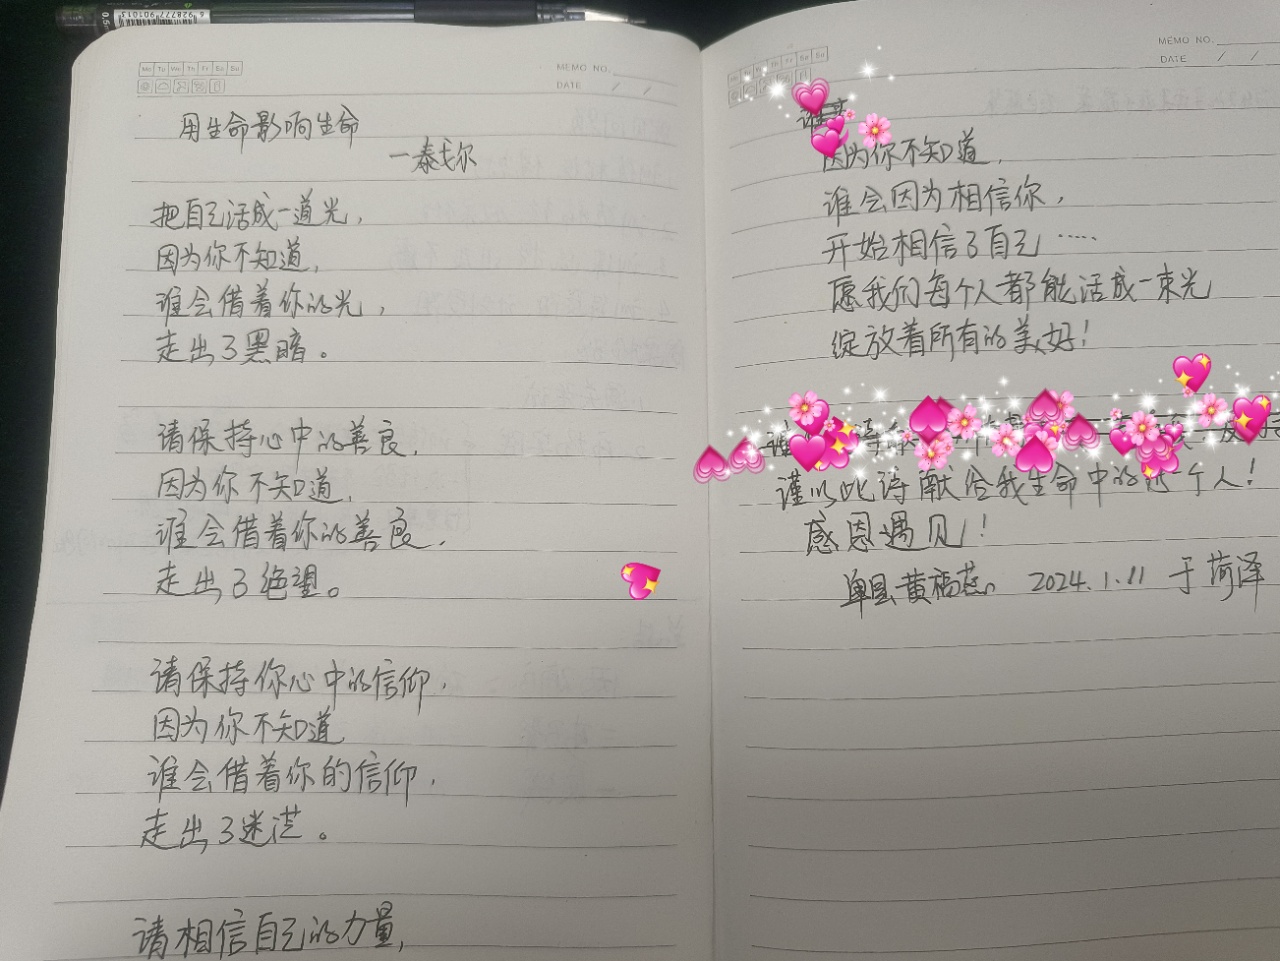 6928777901015
0.5
Mo Tu We Th Fr Sa Su
MEMO NO.
DATE / /
用生命影响生命
—泰戈尔
把自己活成一道光，
因为你不知道，
谁会借着你的光，
走出了黑暗。
请保持心中的善良，
因为你不知道，
谁会借着你的善良，
走出了绝望。
请保持你心中的信仰，
因为你不知道
谁会借着你的信仰，
走出了迷茫。
请相信自己的力量，
MEMO NO.
DATE / /
因为你不知道，
谁会因为相信你，
开始相信了自己……
愿我们每个人都能活成一束光
绽放着所有的美好！
谨以此诗献给我生命中的每个人！
感恩遇见！
单县黄福燕。 2024.1.11 于菏泽